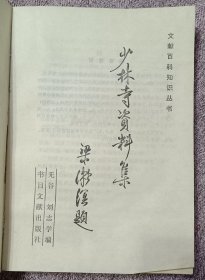 文献百科知识丛书
少林寺资料集
梁漱溟题
无谷 刘志学编
书目文献出版社